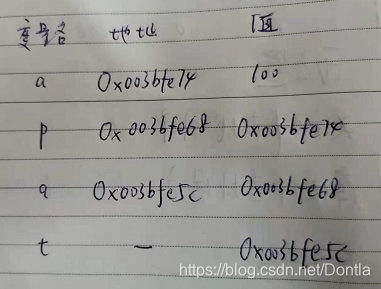 变量名 地址 值
a 0x003bfe74 100
p 0x003bfe68 0x003bfe74
q 0x003bfe5c 0x003bfe68
t — 0x003bfe5c
https://blog.csdn.net/Dontla